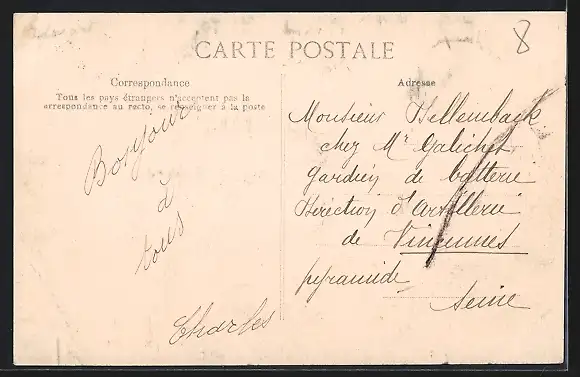 8
CARTE POSTALE
Correspondance
Tous les pays étrangers n'acceptent pas la
correspondance au recto, se renseigner à la poste
Bonjour
à
tous
Charles
Adresse
Monsieur Hellemback
chez Mr Galichet
gardien de batterie
Direction d'artillerie
de Vincennes
pyramide
Seine